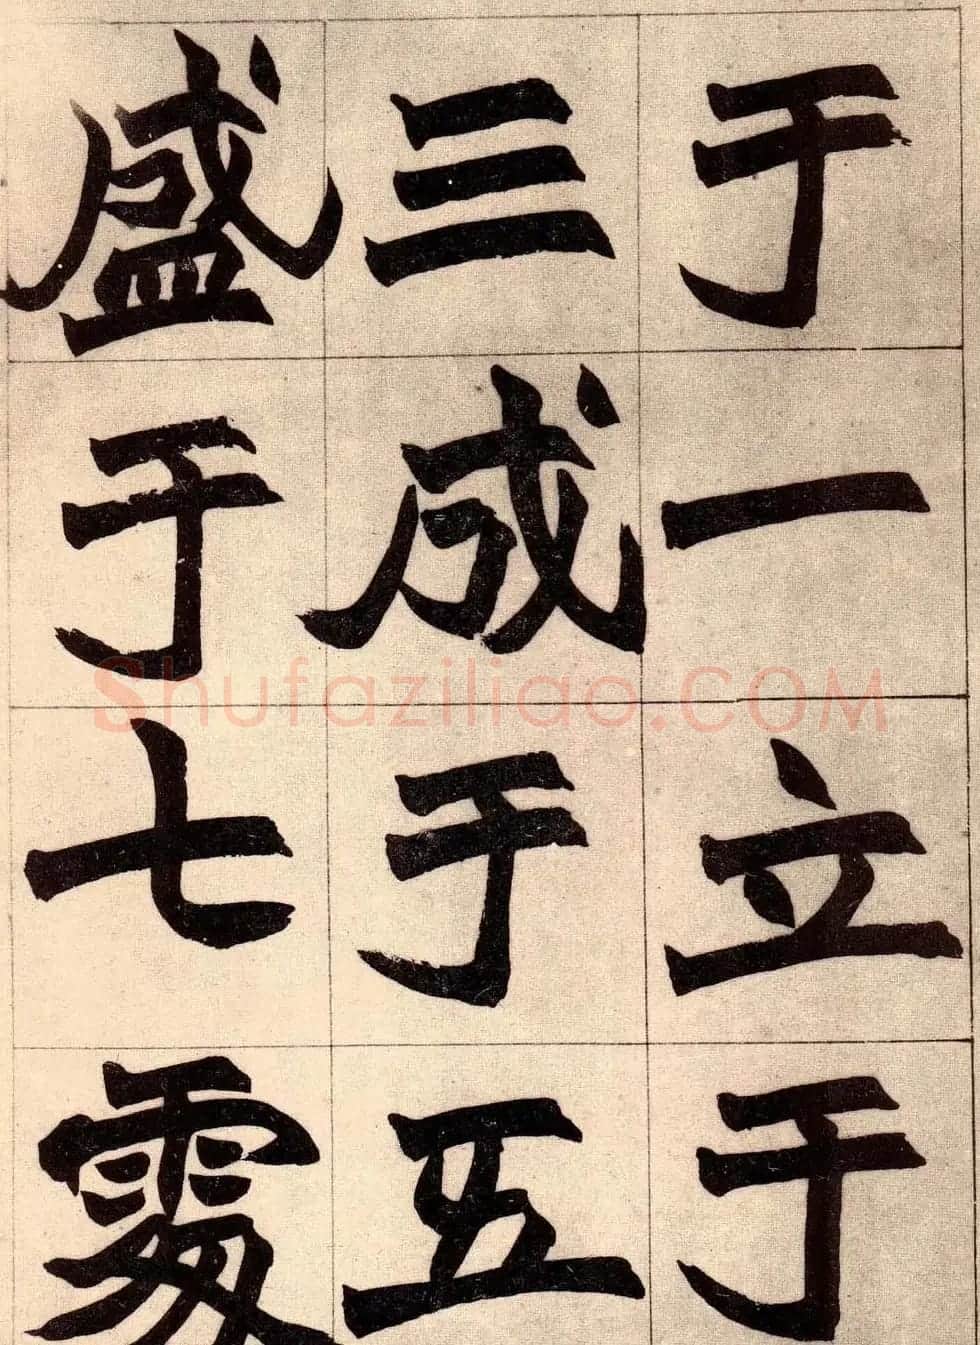 于一立于
三成于五
盛于七處
Shufaziliao.COM